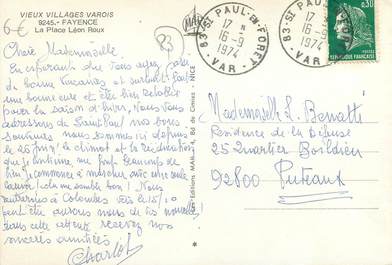 VIEUX VILLAGES VAROIS
9245. - FAYENCE
La Place Léon Roux
6€
83
Chère Mademoiselle
En espérant que vous avez passé
de bonnes vacances et surtout fait
une bonne cure et être bien retapée
pour la saison d'hiver, Nous vous
adressons de Saint Paul nos bons
souvenirs nous sommes ici depuis
le 25 juin, le climat et la rééducation
que je continue me font beaucoup de
bien je commence à marcher avec une seule
canne! cela me semble bon! Nous
rentrerons à Colombes vers le 15/10
peut être aurons nous de vos nouvelles
dans cette attente recevez nos
amitiés
Charlot
Editions MAR
Bd de Cimiez - NICE
83 - ST PAUL-EN-FORET
17 H
16-9
1974
VAR
83 - ST PAUL-EN-FORET
17 H
16-9
1974
VAR
0,30
Mademoiselle L. Benatti
Résidence de la Défense
25 Quartier Boildieu
92800 Puteaux